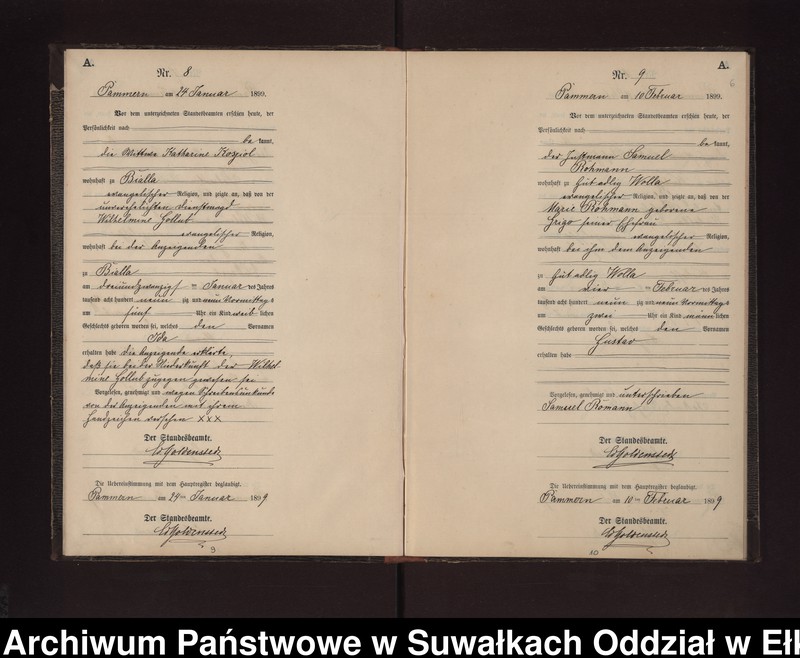 A.
Nr. 8
Pammern am 24 Januar 1899.
Vor dem unterzeichneten Standesbeamten erschien heute, der
Persönlichkeit nach
be kannt,
die Wittwe Katharine Koziol
wohnhaft zu Bialla
evangelischer Religion, und zeigte an, daß von der
unverehelichten Dienstmagd
Wilhelmine Gollub
evangelischer Religion,
wohnhaft bei der Anzeigenden
zu Bialla
am dreiundzwanzigsten Januar des Jahres
tausend acht hundert neun zig und neun Vormittags
um fünf Uhr ein Kind weib lichen
Geschlechts geboren worden sei, welches den Vornamen
Ida
erhalten habe die Anzeigende erklärte,
daß sie bei der Niederkunft der Wilhel-
mine Gollub zugegen gewesen sei
Vorgelesen, genehmigt und wegen Schreibensunkunde
von der Anzeigenden mit ihrem
Handzeichen versehen XXX
Der Standesbeamte.
Die Uebereinstimmung mit dem Hauptregister beglaubigt.
Pammern am 24ten Januar 1899
Der Standesbeamte.
9
A.
6
Nr. 9
Pammern am 10 Februar 1899.
Vor dem unterzeichneten Standesbeamten erschien heute, der
Persönlichkeit nach
be kannt,
der Justmann Samuel
Rohmann
wohnhaft zu Gut adlig Wolla
evangelischer Religion, und zeigte an, daß von der
Marie Rohmann geborene
Grigo seiner Ehefrau
evangelischer Religion,
wohnhaft bei ihm dem Anzeigenden
zu Gut adlig Wolla
am Februar des Jahres
tausend acht hundert neun zig und neun Vormittags
um zwei Uhr ein Kind männ lichen
Geschlechts geboren worden sei, welches den Vornamen
Gustav
erhalten habe
Vorgelesen, genehmigt und unterschrieben
Samuel Romann
Der Standesbeamte.
Die Uebereinstimmung mit dem Hauptregister beglaubigt.
Pammern am 10ten Februar 1899
Der Standesbeamte.
10
Archiwum Państwowe w Suwałkach Oddział w Ełk